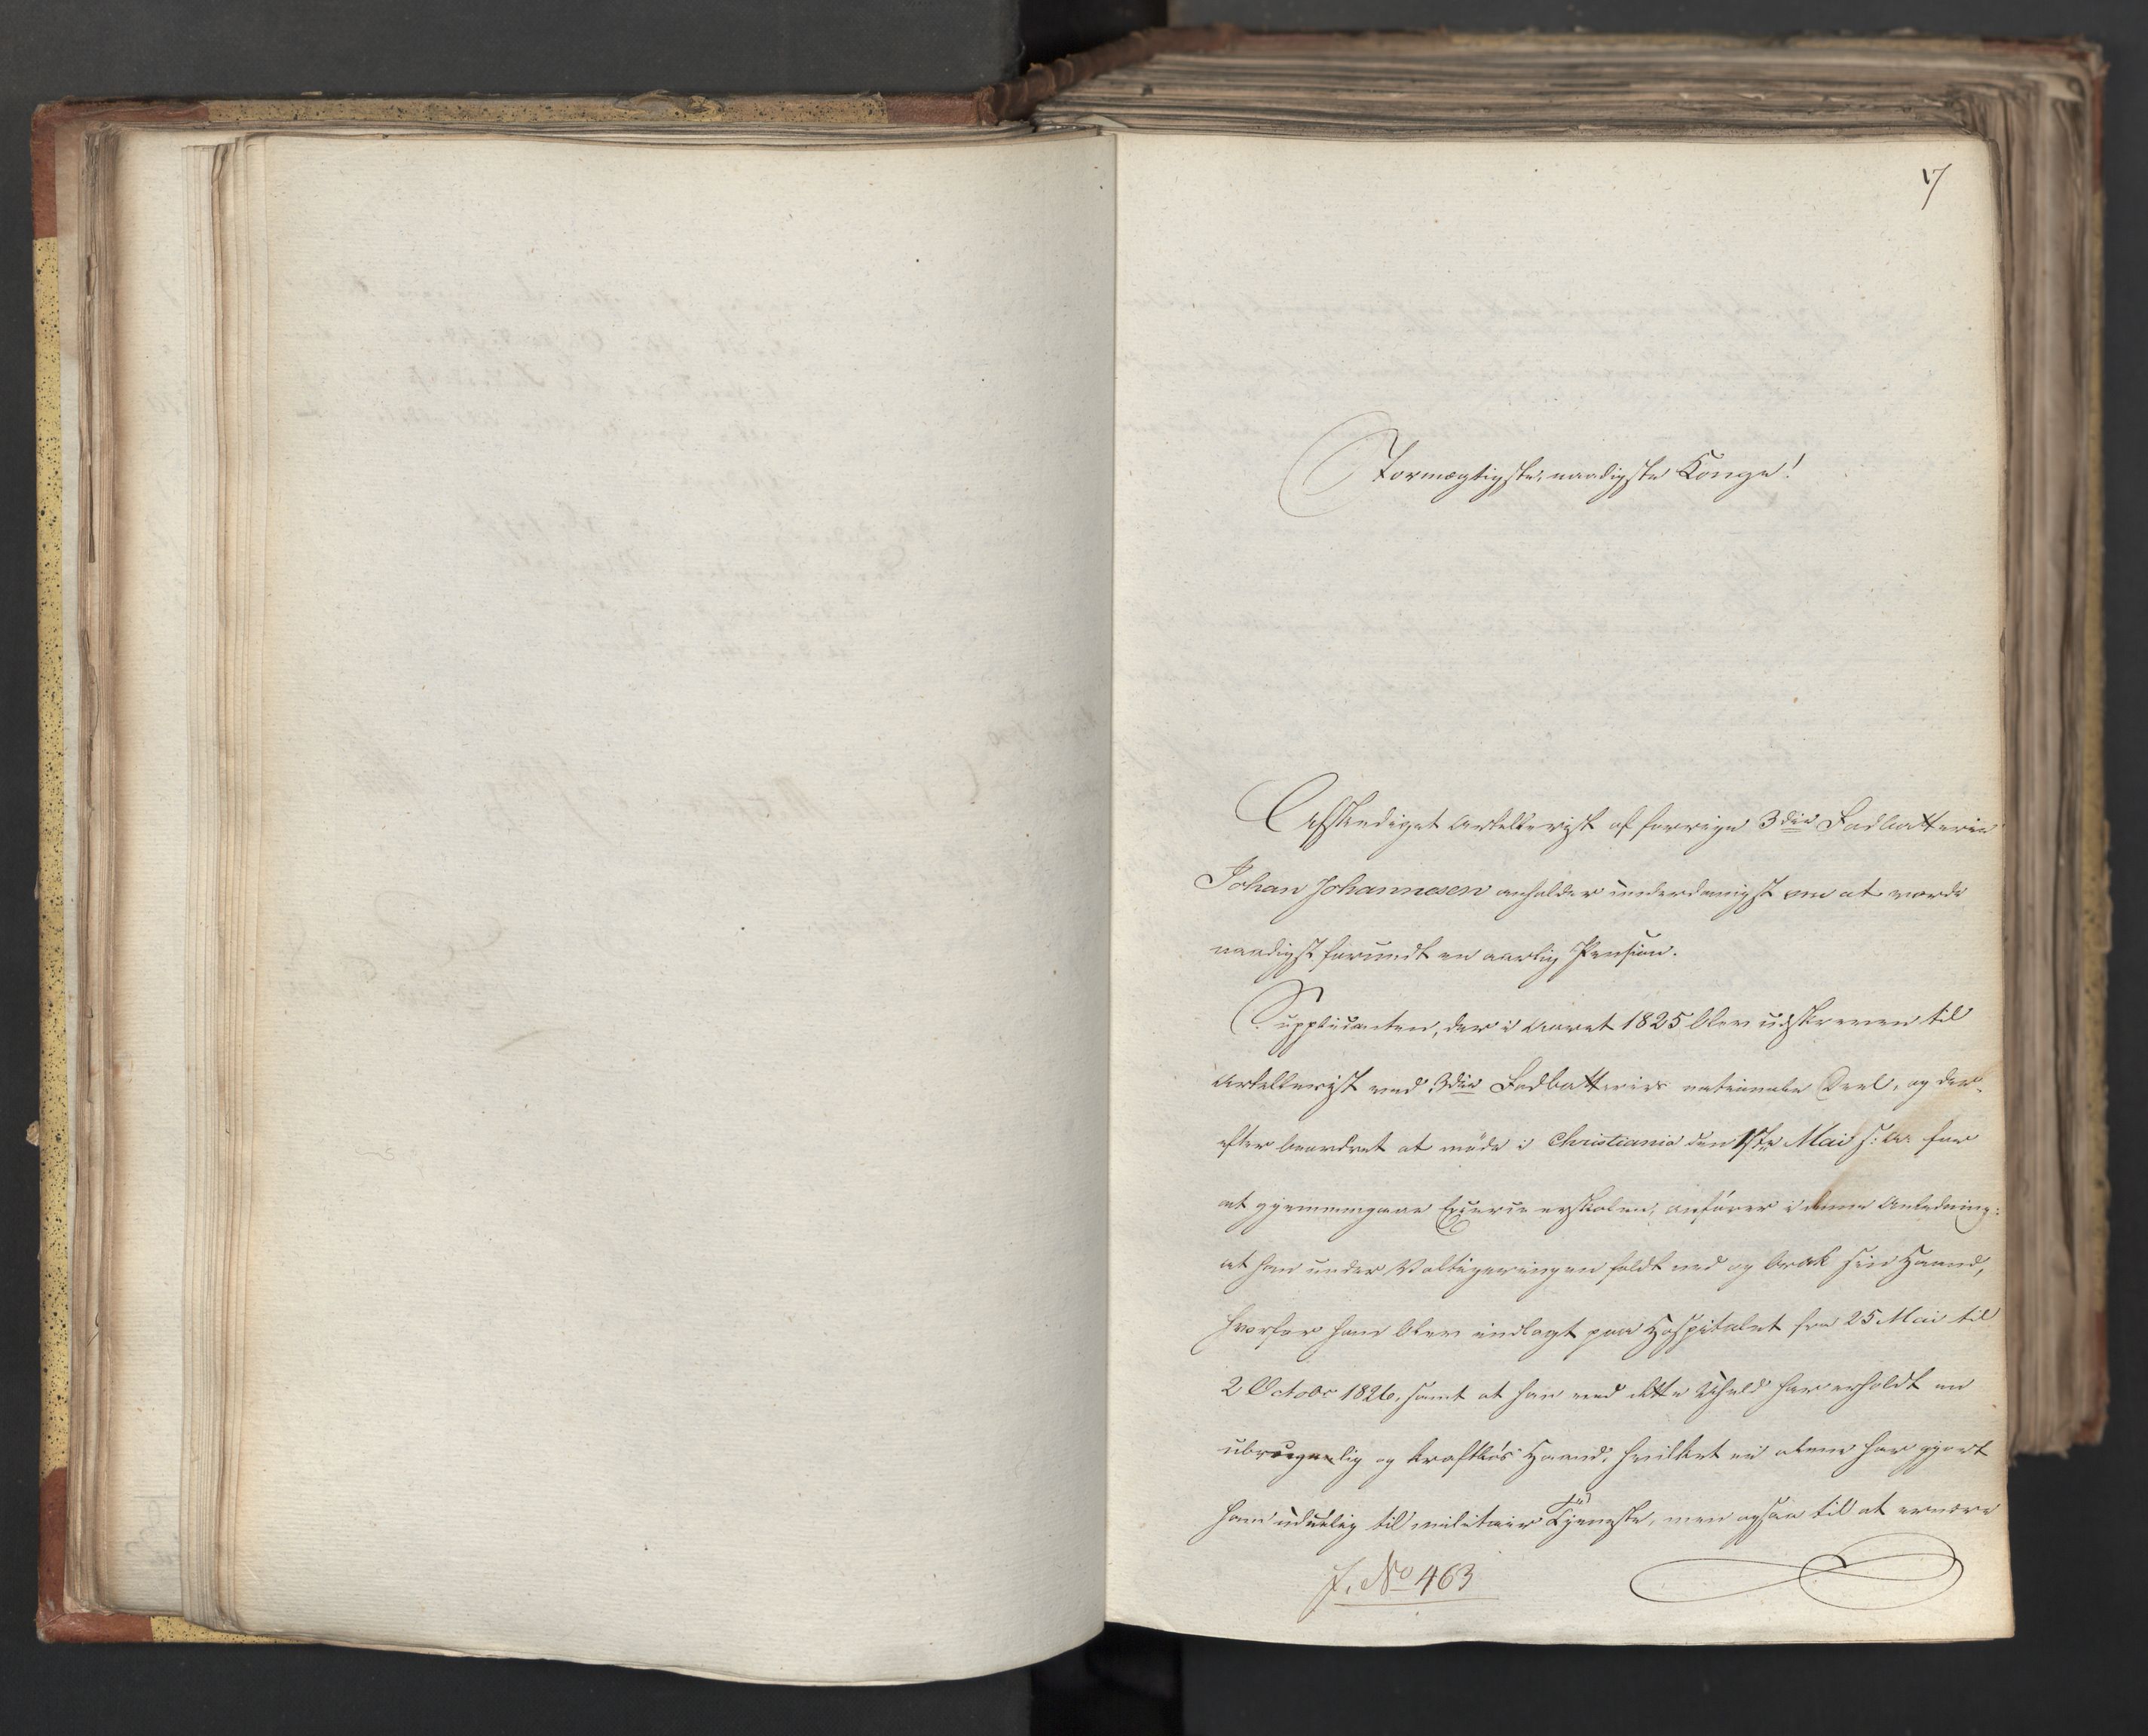 17
Stormægtigste, naadigste Konge!
Afskediget Artellerist af forrige 3die Fodbatterie
Johan Johannesen anholder underdanigst om at vorde
naadigst forundt en aarlig Pension.
Supplicanten, der i Aaret 1825 blev udskreven til
Artellerist ved 3die Fodbatteries nationale Deel, og der-
efter beordret at møde i Christiania den 1ste Mai s: A: for
at gjennemgaae Exerceerskolen, anfører i denne Anledning:
at han under Voltigeringen faldt ned og brak sin Haand,
hvorfor han blev indlagt paa Hospitalet fra 25 Mai til
2 Octobr 1826, samt at han ved dette Uheld har erholdt en
ubrugelig og kraftløs Haand, hvilket ei alene har gjort
ham uduelig til militair Tjeneste, men ogsaa til at ernære
J. No 463